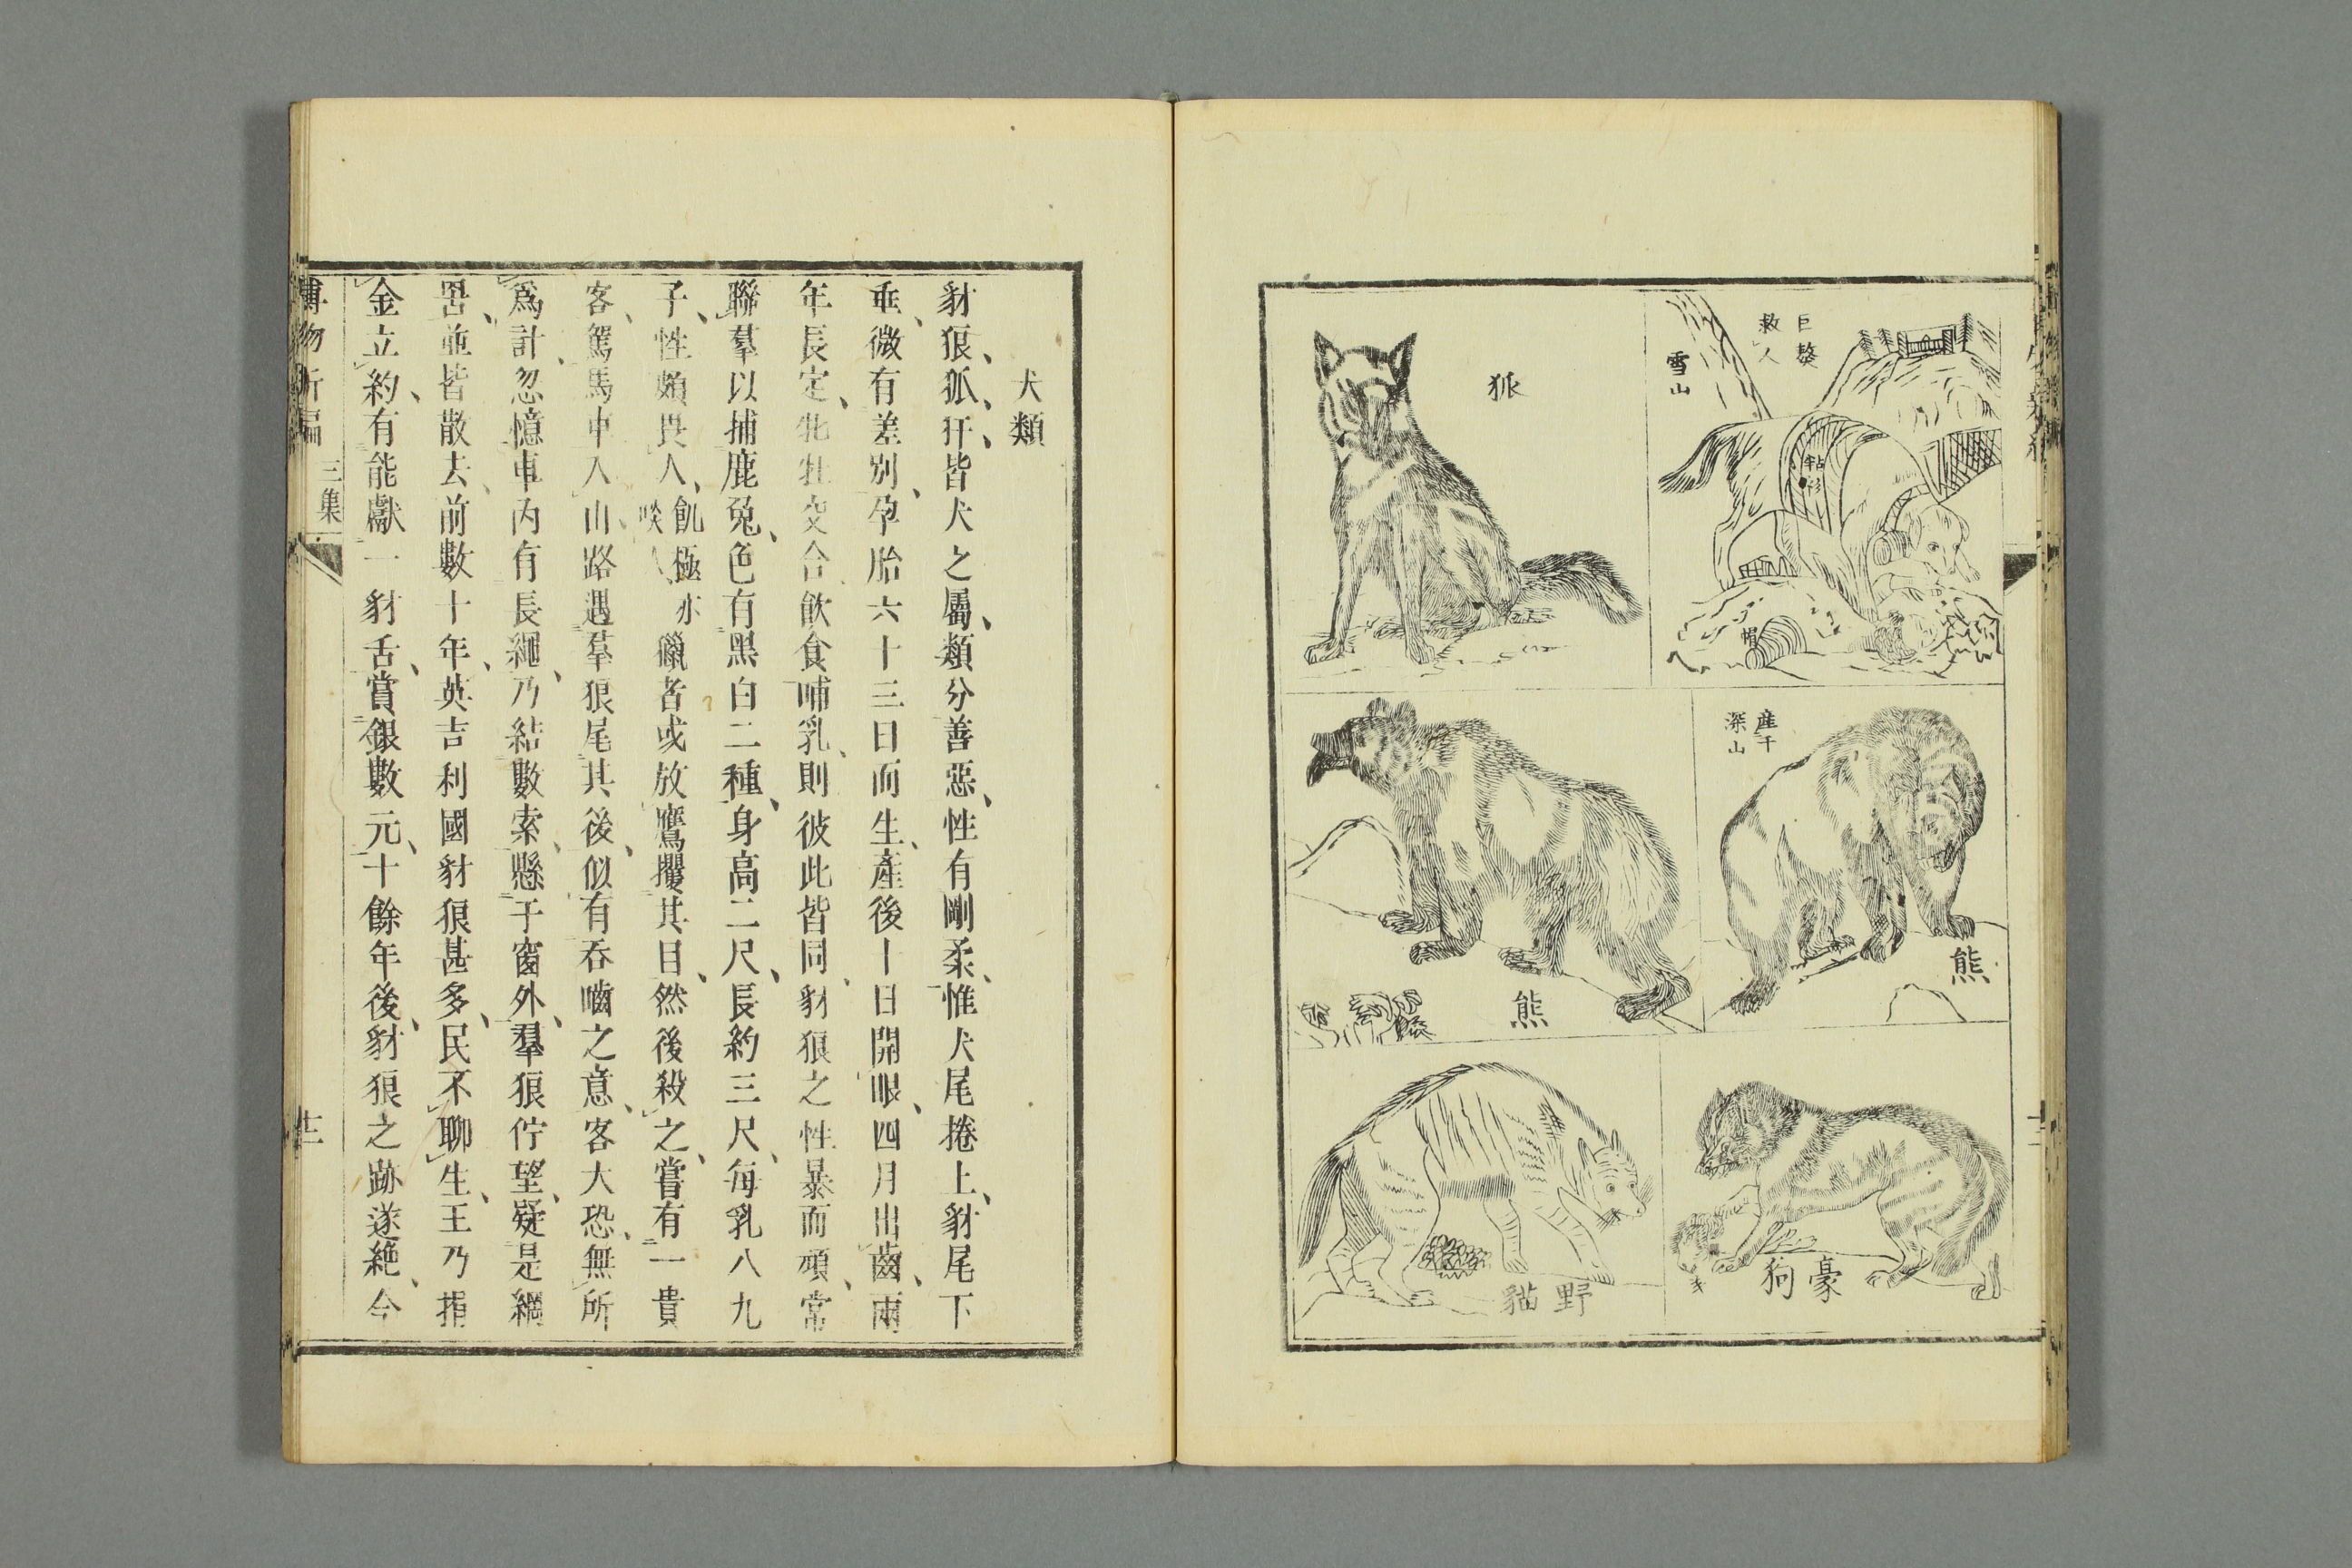 巨獒
救人
雪山
毡衫
帽
狐
產于
深山
熊
熊
豪狗
野貓
犬類
豺狼、狐、犴、皆犬之屬、類分善惡、性有剛柔、惟犬尾捲上、豺尾下
垂、微有差別、孕胎六十三日而生、產後十日開眼、四月出齒、兩
年長定、牝牡交合、飲食哺乳、則彼此皆同、豺狼之性暴而頑、常
聯羣以捕鹿兔、色有黑白二種、身高二尺、長約三尺、每乳八九
子、性頗畏人、飢極亦啖人、獵者或放鷹攫其目、然後殺之、嘗有一貴
客、駕馬車入山、路遇羣狼尾其後、似有吞嚙之意、客大恐、無所
爲計、忽憶車內有長繩、乃結數索、懸于窗外、羣狼佇望、疑是網
罟、並皆散去、前數十年、英吉利國豺狼甚多、民不聊生、王乃捐
金立約、有能獻一豺舌、賞銀數元、十餘年後、豺狼之跡遂絶、今
博物新編
三集
十二